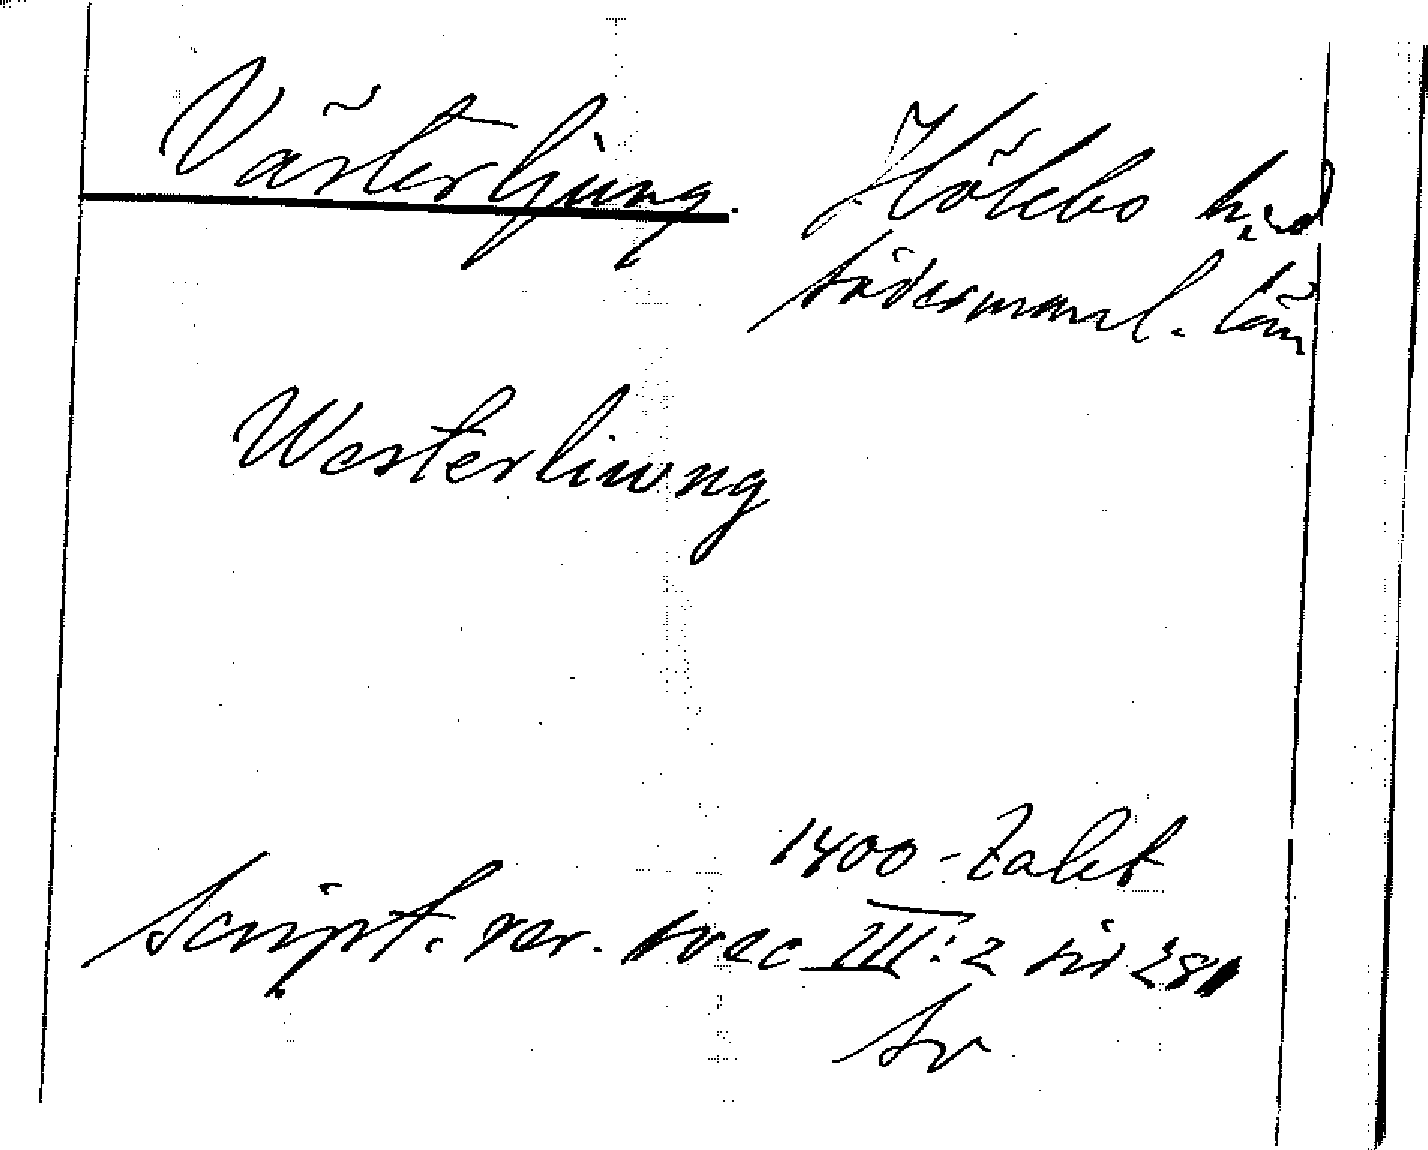 Västerljung. Hölebo hrd
Södermanl. län
Westerliwng
1400-talet
Script. rer. svec III:2 sid 281
Sv